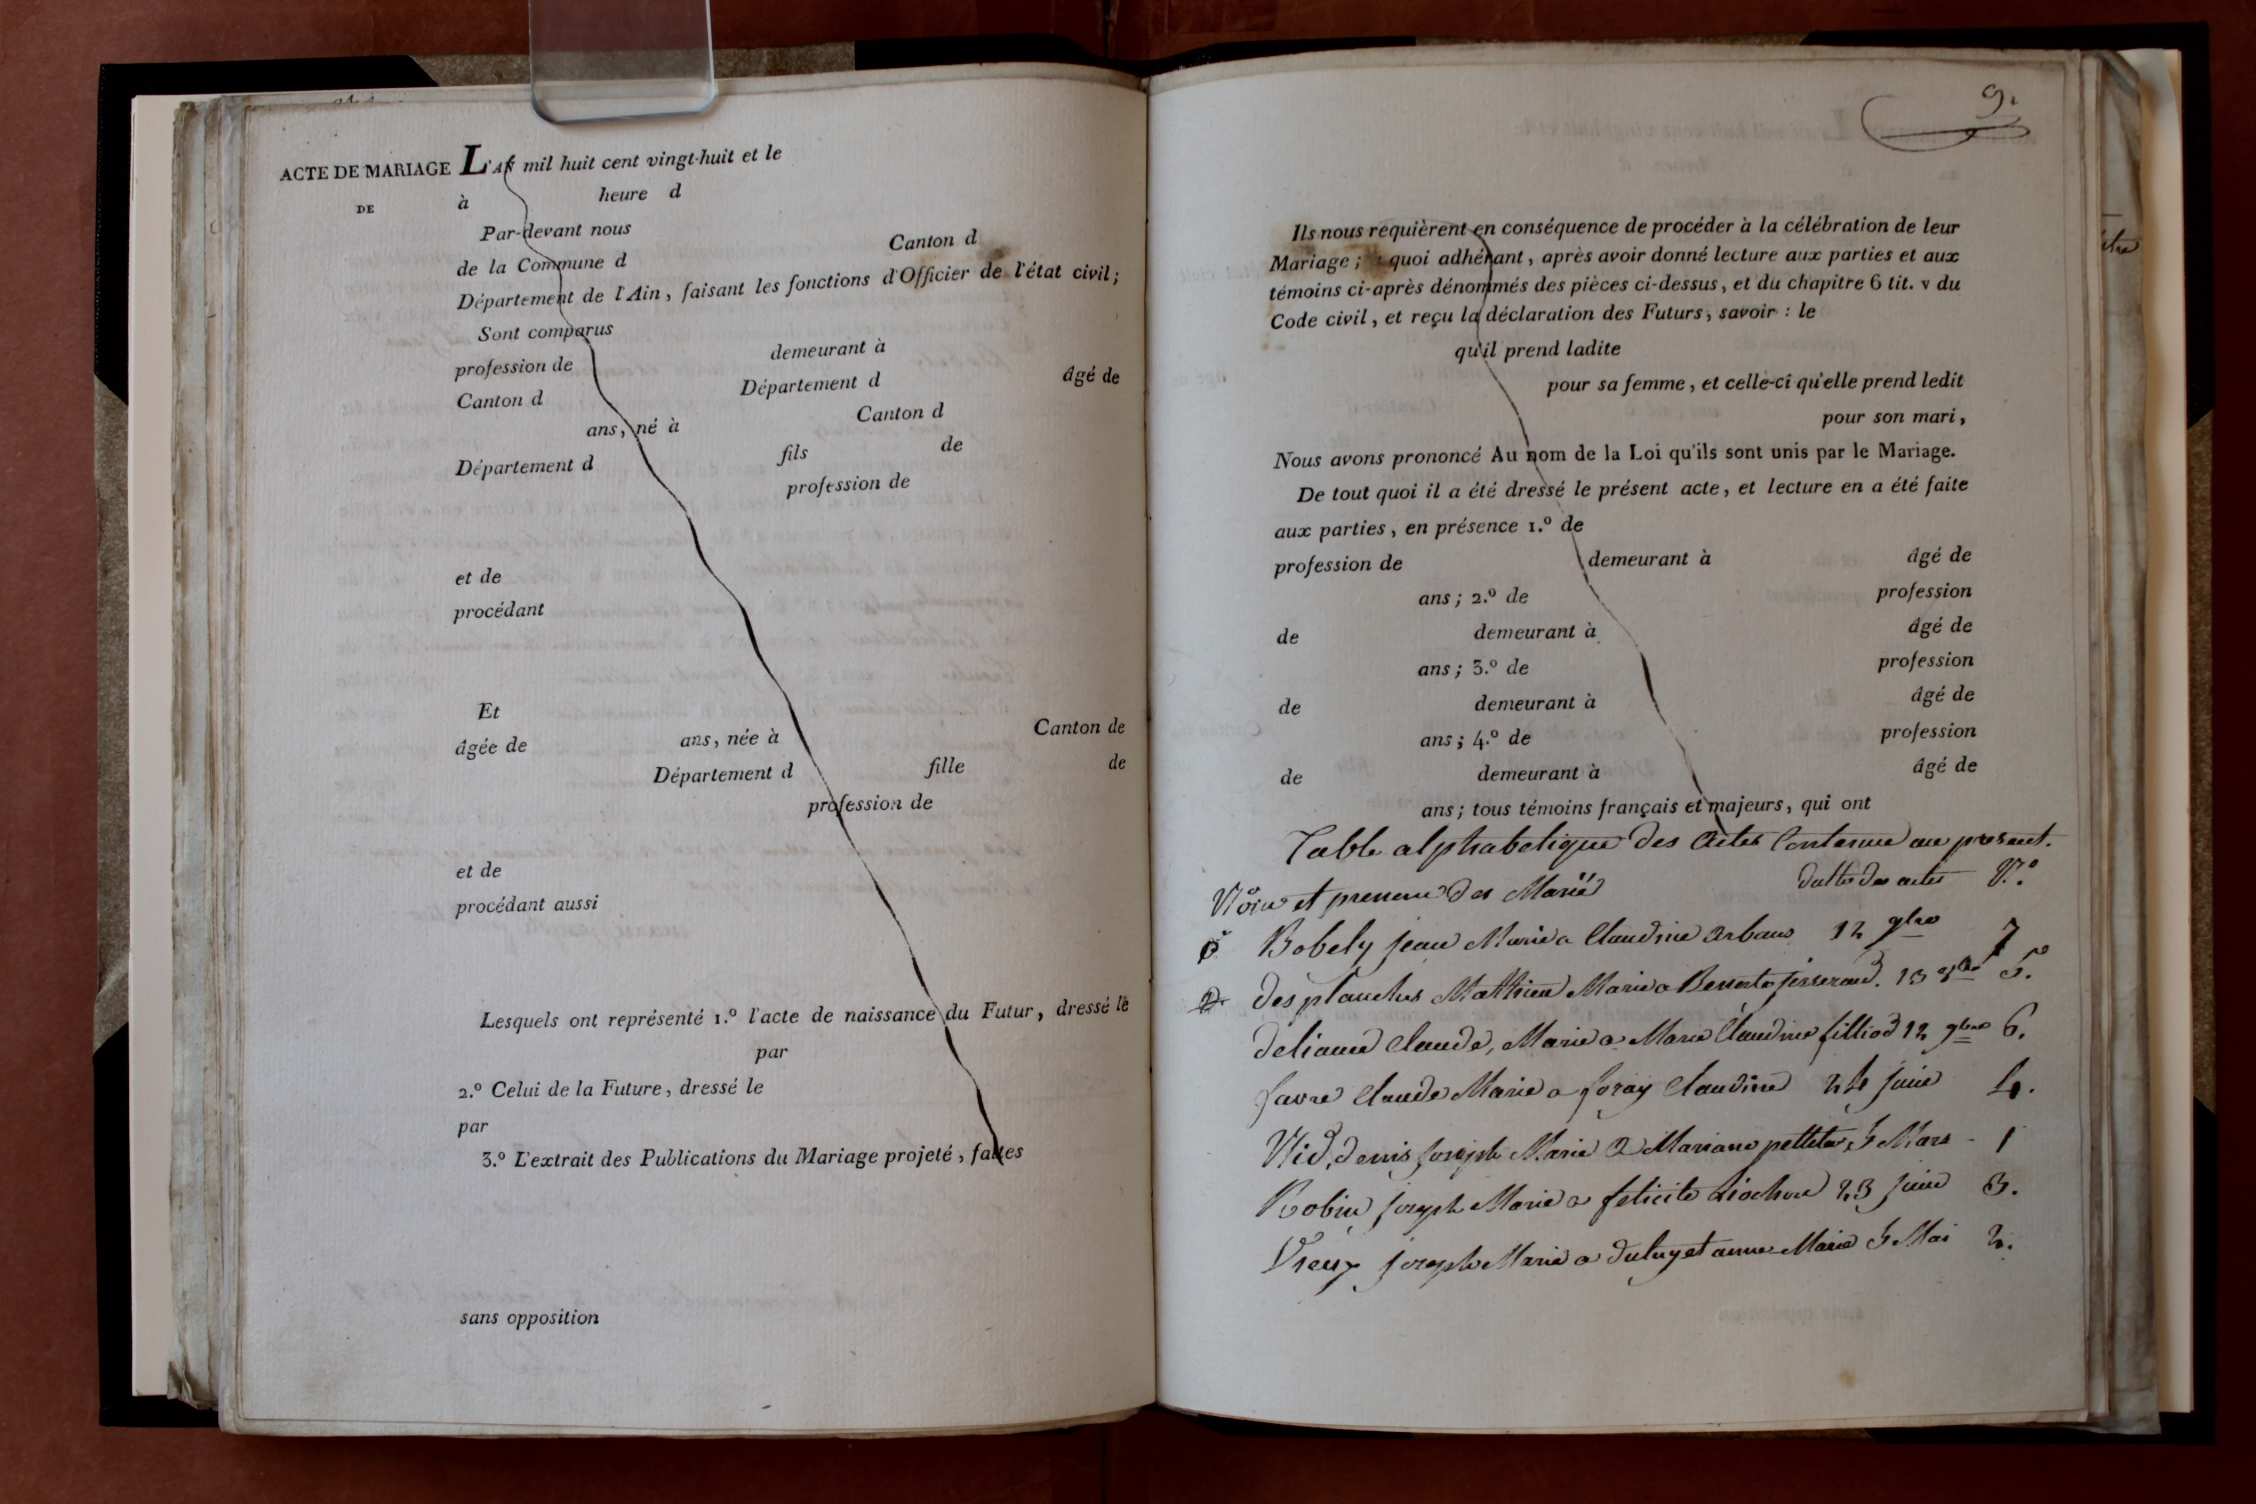 ACTE DE MARIAGE L'AN mil huit cent vingt-huit et le
DE à heure d
Par-devant nous
de la Commune d Canton d
Département de l'Ain, faisant les fonctions d'Officier de l'état civil;
Sont comparus
profession de demeurant à
Canton d Département d âgé de
ans, né à Canton d
Département d fils de
profession de
et de
procédant
Et
âgée de ans, née à Canton de
Département d fille de
profession de
et de
procédant aussi
Lesquels ont représenté 1.º l'acte de naissance du Futur, dressé le
par
2.º Celui de la Future, dressé le
par
3.º L'extrait des Publications du Mariage projeté, faites
sans opposition
9.
Ils nous requièrent en conséquence de procéder à la célébration de leur
Mariage; quoi adhérant, après avoir donné lecture aux parties et aux
témoins ci-après dénommés des pièces ci-dessus, et du chapitre 6 tit. v du
Code civil, et reçu la déclaration des Futurs, savoir : le
qu'il prend ladite
pour sa femme, et celle-ci qu'elle prend ledit
pour son mari,
Nous avons prononcé Au nom de la Loi qu'ils sont unis par le Mariage.
De tout quoi il a été dressé le présent acte, et lecture en a été faite
aux parties, en présence 1.º de
profession de demeurant à âgé de
ans; 2.º de profession
de demeurant à âgé de
ans; 3.º de profession
de demeurant à âgé de
ans; 4.º de profession
de demeurant à âgé de
ans; tous témoins français et majeurs, qui ont
Table alphabetique des actes Contenue au present.
et des Marié des actes N.º
Bobely jean Marie a Claudine 12 9bre 7
des planches Mathieu Marie a 13 5.
Claude, Marie a Marie Claudine filliod 12 9bre 6.
favre Claude Marie a foray Claudine 24 juin 4.
Nid, denis joseph Marie a Mariane 5 Mars - 1
Robin joseph Marie a felicite 23 juin 3.
Vieux joseph Marie a anne Marie 5 Mai 2.